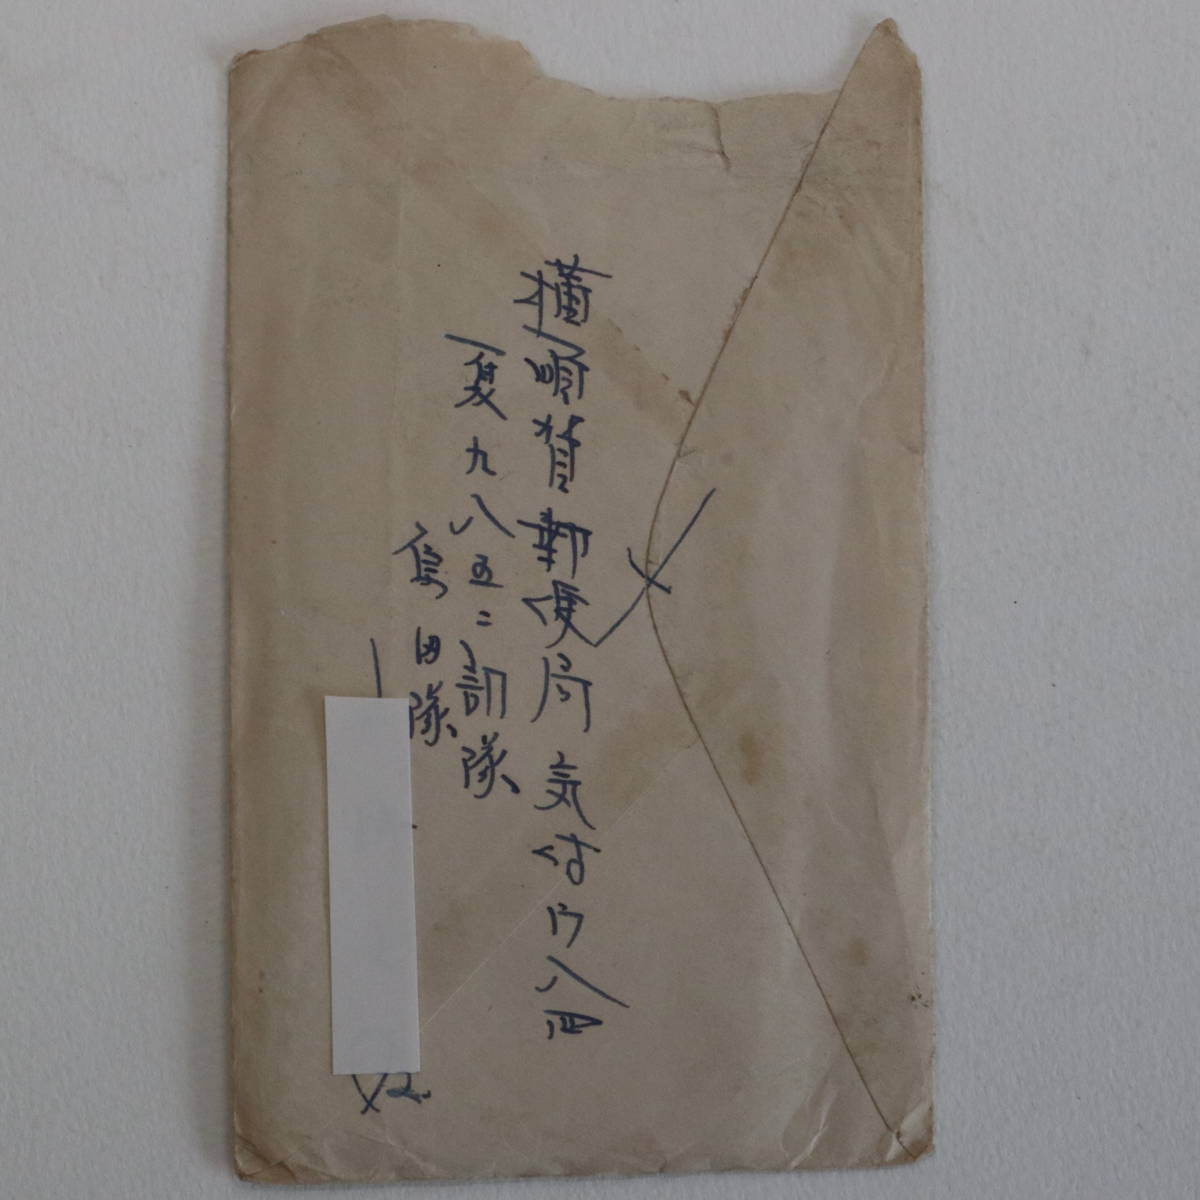 横須賀郵便局気付ウ八四
夏九八五二訓隊
島田隊